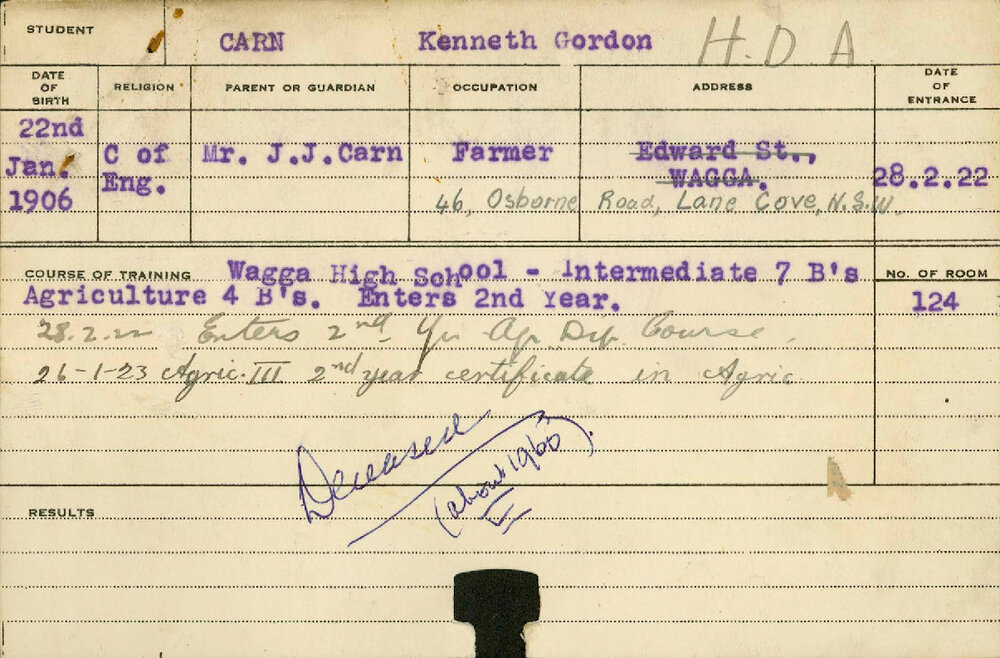 STUDENT CARN Kenneth Gordon H.D A
DATE OF BIRTH RELIGION PARENT OR GUARDIAN OCCUPATION ADDRESS DATE OF ENTRANCE
22nd Jan. 1906 C of Eng. Mr. J.J.Carn Farmer Edward St., WAGGA. 28.2.22
46, Osborne Road, Lane Cove, N.S.W.
COURSE OF TRAINING Wagga High School - Intermediate 7 B's NO. OF ROOM
Agriculture 4 B's. Enters 2nd Year. 124
28.2.22 Enters 2nd Yr Agr. Dip. Course.
26-1-23 Agric. III 2nd year certificate in Agric
Deceased
(about 1960).
RESULTS